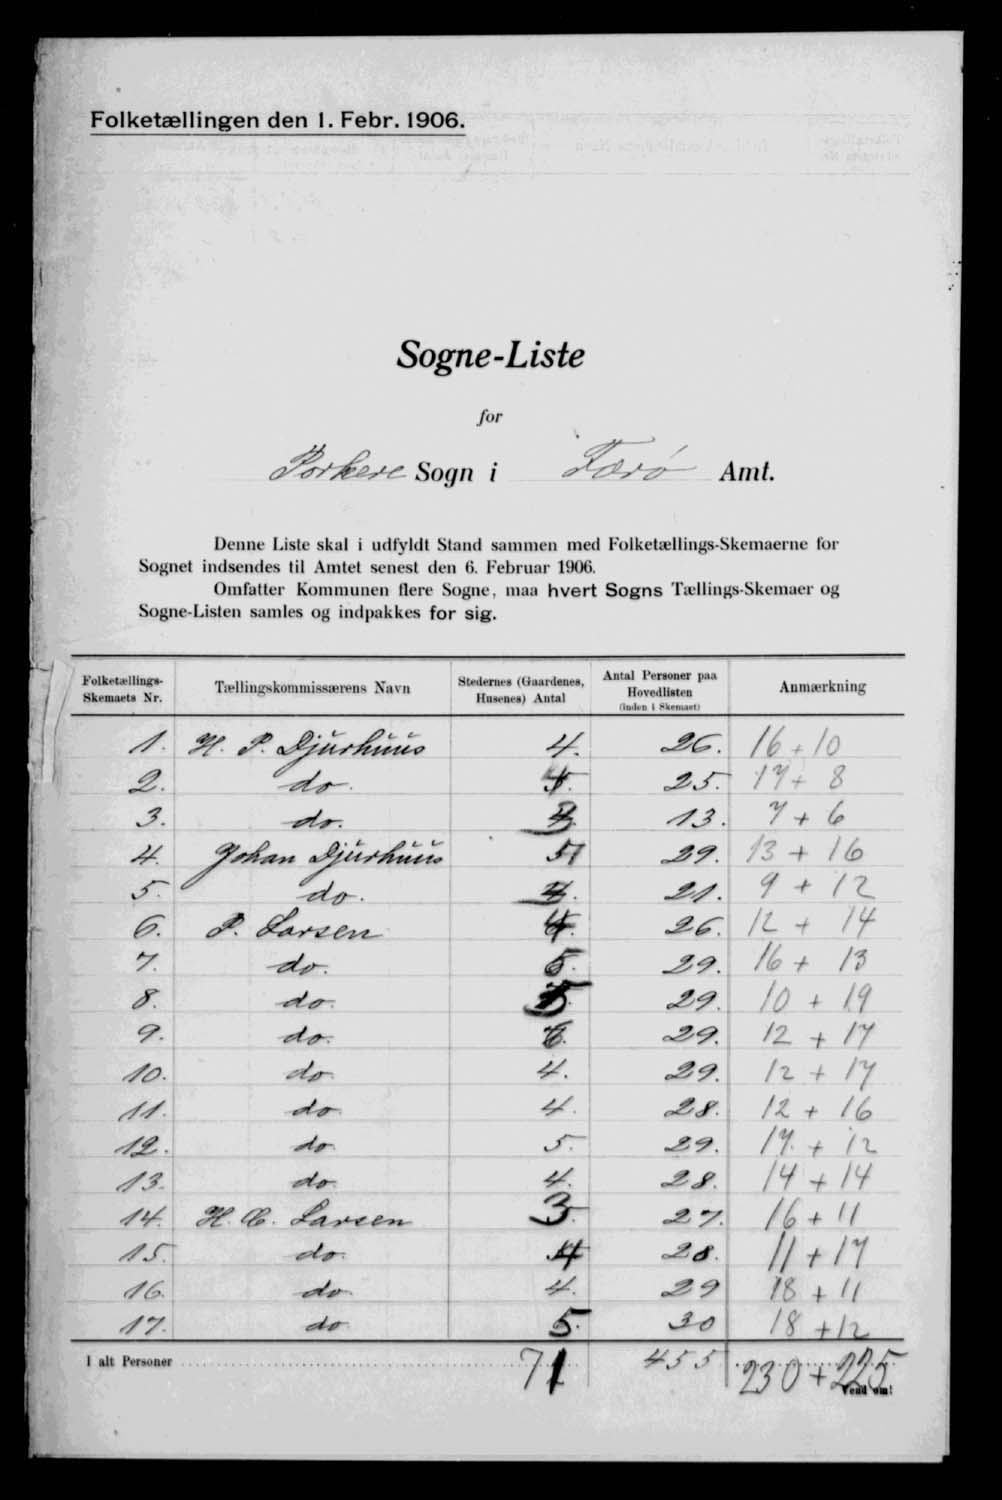 Folketællingen den 1. Febr. 1906.
Sogne-Liste
for
Porkere Sogn i Færø Amt.
Denne Liste skal i udfyldt Stand sammen med Folketællings-Skemaerne for
Sognet indsendes til Amtet senest den 6. Februar 1906.
Omfatter Kommunen flere Sogne, maa hvert Sogns Tællings-Skemaer og
Sogne-Listen samles og indpakkes for sig.
Folketællings-Skemaets Nr. Tællingskommissærens Navn Stedernes (Gaardenes, Husenes) Antal Antal Personer paa Hovedlisten (inden i Skemaet) Anmærkning
1. H. P. Djurhuus 4. 26. 16 + 10
2. do. 25. 17 + 8
3. do. 13. 7 + 6
4. Johan Djurhuus 5 29. 13 + 16
5. do. 4. 21. 9 + 12
6. P. Larsen 4. 26. 12 + 14
7. do. 5. 29. 16 + 13
8. do. 5. 29. 10 + 19
9. do. 29. 12 + 17
10. do. 4. 29. 12 + 17
11. do. 4. 28. 12 + 16
12. do. 5. 29. 17. + 12
13. do. 4. 28. 14 + 14
14. H. Larsen 3. 27. 16 + 11
15. do. 4 28. 11 + 17
16. do 4. 29 18 + 11
17. do. 5. 30 18 + 12
I alt Personer 71 455 230 + 225
Vend om!